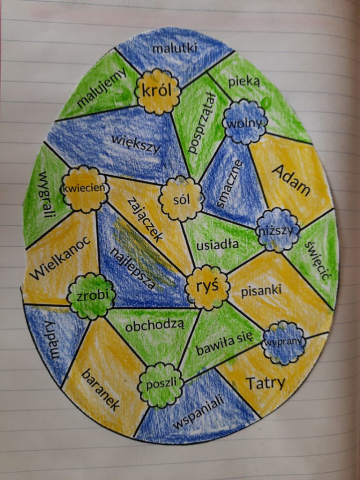 malutki
malujemy
król
pieką
posprzątał
wolny
większy
smaczne
Adam
wygrali
kwiecień
sól
zajączek
niższy
usiadła
święcić
Wielkanoc
najlepsza
ryś
pisanki
zrobi
obchodzą
mądry
bawiła się
wyprany
baranek
poszli
Tatry
wspaniali